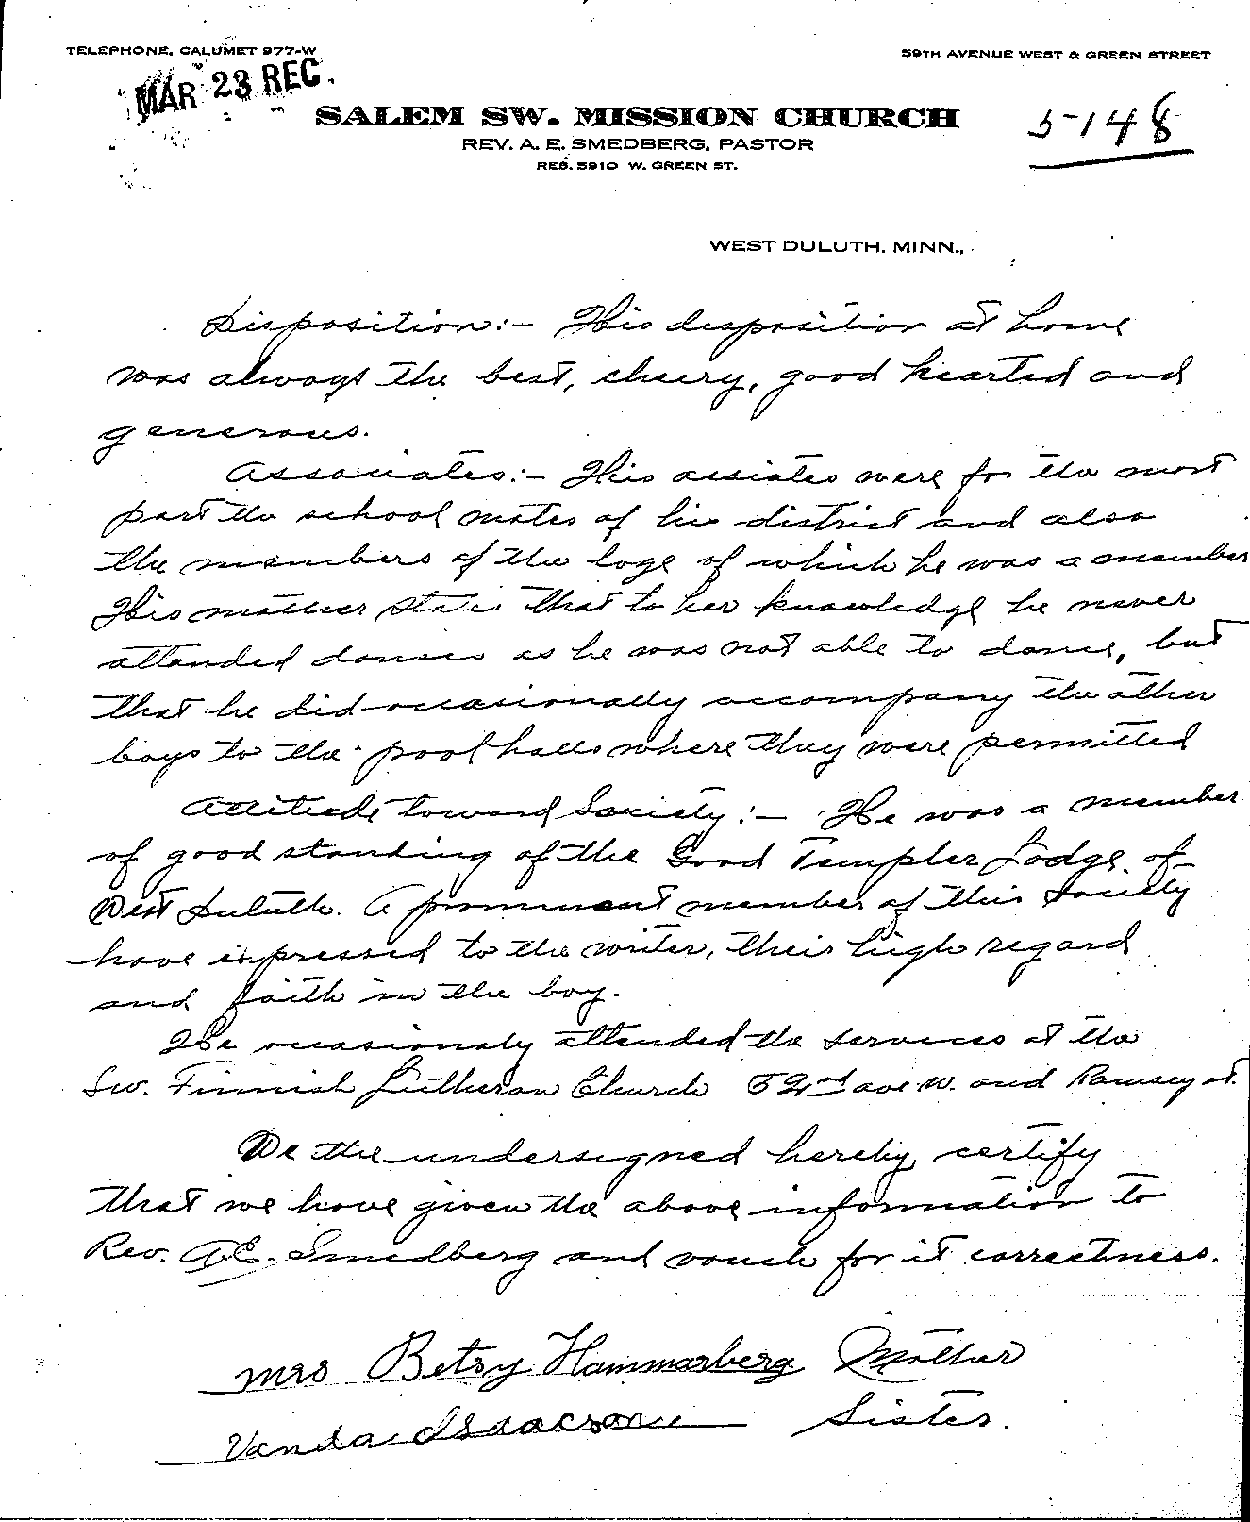 TELEPHONE, CALUMET 977-W
59TH AVENUE WEST & GREEN STREET
MAR 23 REC.
SALEM SW. MISSION CHURCH
5-148
REV. A. E. SMEDBERG, PASTOR
RES. 5910 W. GREEN ST.
WEST DULUTH, MINN.,
Disposition:- His disposition at home
was always the best, cheery, good hearted and
generous.
Associates:- His assiates were for the most
part the school mates of his district and also
the members of the loge of which he was a member
His mother states that to her knowledge he never
attended dances as he was not able to dance, but
that he did occasionally accompany the other
boys to the pool halls where they were permitted
Attitude toward Society:- He was a member
of good standing of the Good Templer Lodge of
West Duluth. A prominent member of this Society
have expressed to the writer, their high regard
and faith in the boy.
He occasionaly attended the services at the
Sw. Finnish Lutheran Church 52nd ave w. and Ramsey st.
We the undersigned hereby certify
that we have given the above information to
Rev. A.E. Smedberg and vouch for it correctness.
Mrs Betsy Hammarberg Mother
Vanda Isaacson Sister.